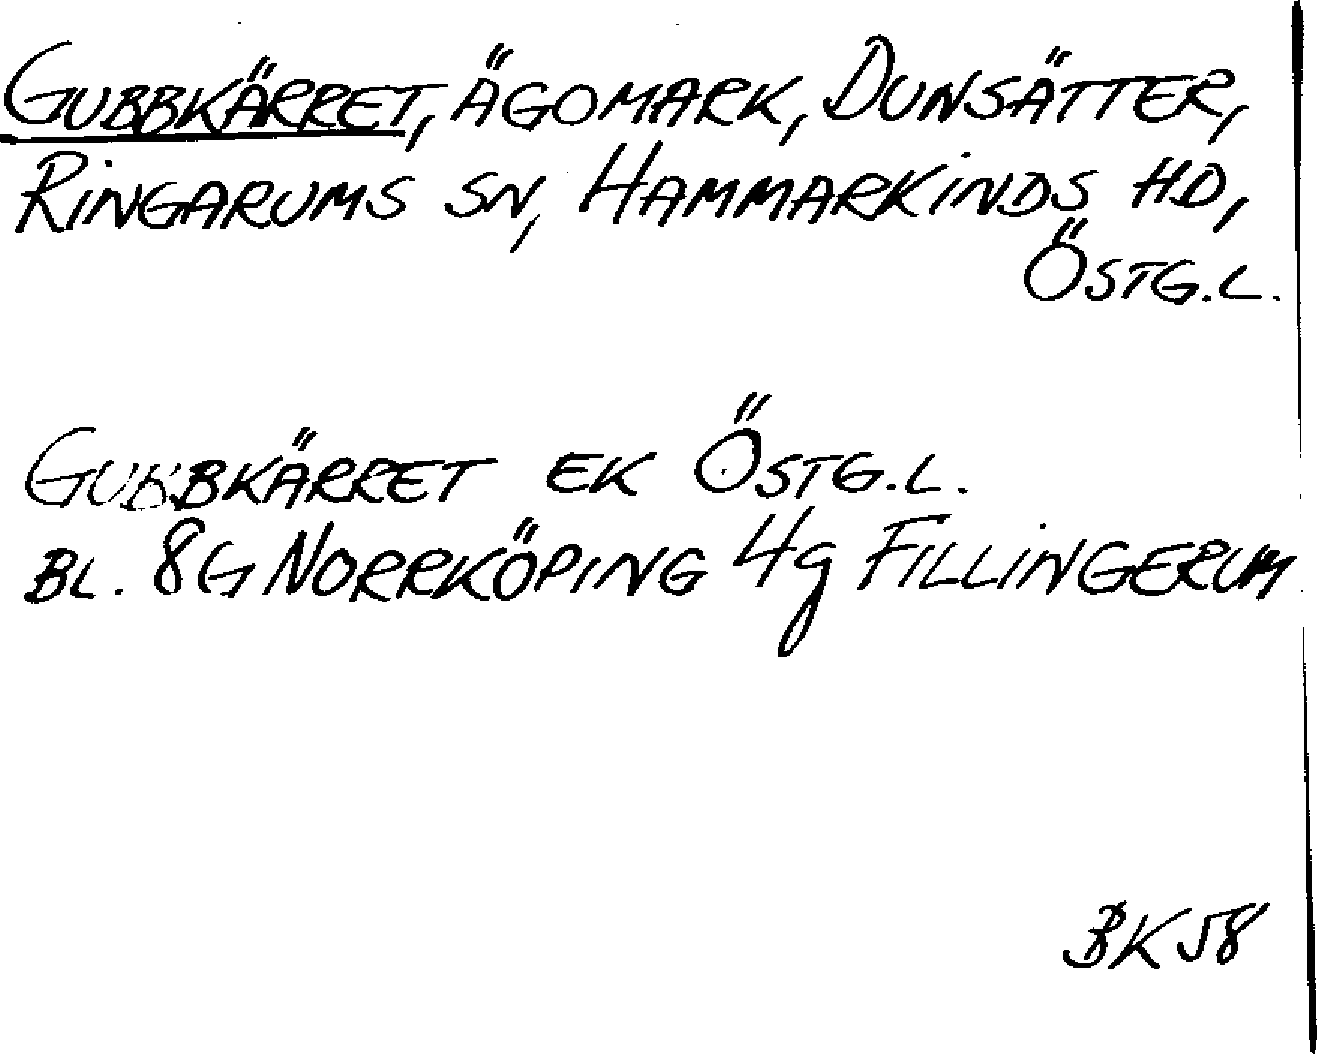 GUBBKÄRRET, ÄGOMARK, DUNSÄTTER,
RINGARUMS SN, HAMMARKINDS HD,
ÖSTG.L.
GUBBKÄRRET EK ÖSTG.L.
BL. 8G NORRKÖPING 4g FILLINGERUM
BK 58